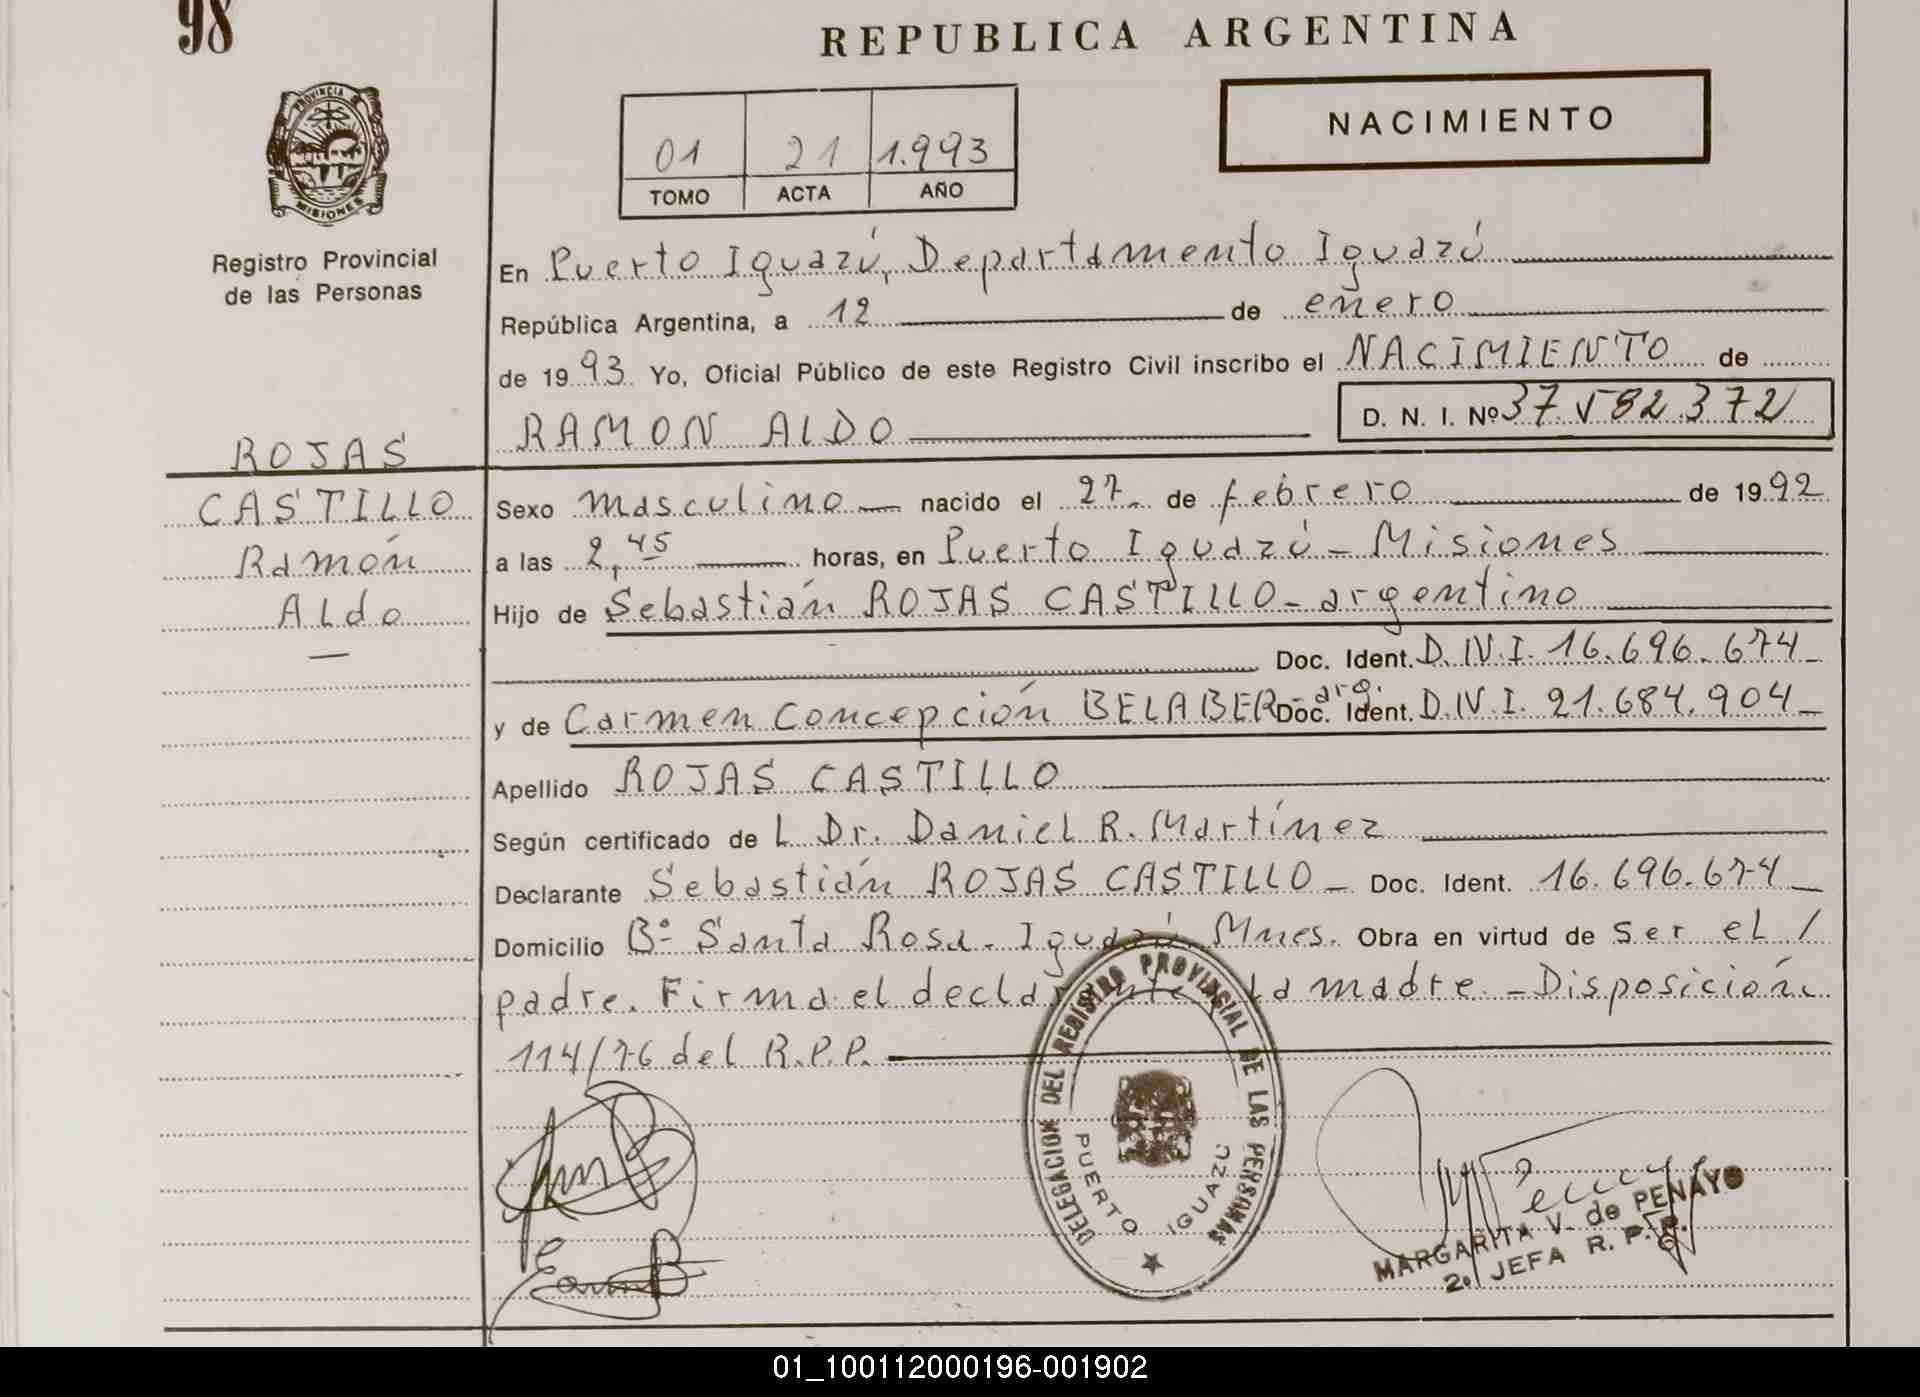 98
REPUBLICA ARGENTINA
PROVINCIA DE MISIONES
Registro Provincial
de las Personas
NACIMIENTO
01 21 1.993
TOMO ACTA AÑO
En Puerto Iguazú, Departamento Iguazú
República Argentina, a 12 de enero
de 1993. Yo, Oficial Público de este Registro Civil inscribo el NACIMIENTO de
RAMON ALDO D. N. I. Nº 37.
ROJAS
CASTILLO
Ramón
Aldo
Sexo masculino nacido el 27 de febrero de 1992
a las 2,45 horas, en Puerto Iguazú - Misiones
Hijo de Sebastián ROJAS CASTILLO - argentino
Doc. Ident. D.N.I. 16.696.674
y de Carmen Concepción BELABER - arg. Doc. Ident. D.N.I. 21.684.904
Apellido ROJAS CASTILLO
Según certificado de L Dr. Daniel R. Martínez
Declarante Sebastián ROJAS CASTILLO - Doc. Ident. 16.696.674
Domicilio Bº Santa Rosa. Iguazú. Mnes. Obra en virtud de ser el /
padre. Firma el declarante la madre. - Disposición
114/76 del R.P.P.
DELEGACION DEL REGISTRO PROVINCIAL DE LAS PERSONAS
PUERTO IGUAZU
MARGARITA V. de PENAYO
2o JEFA R. P. P.
01_100112000196-001902